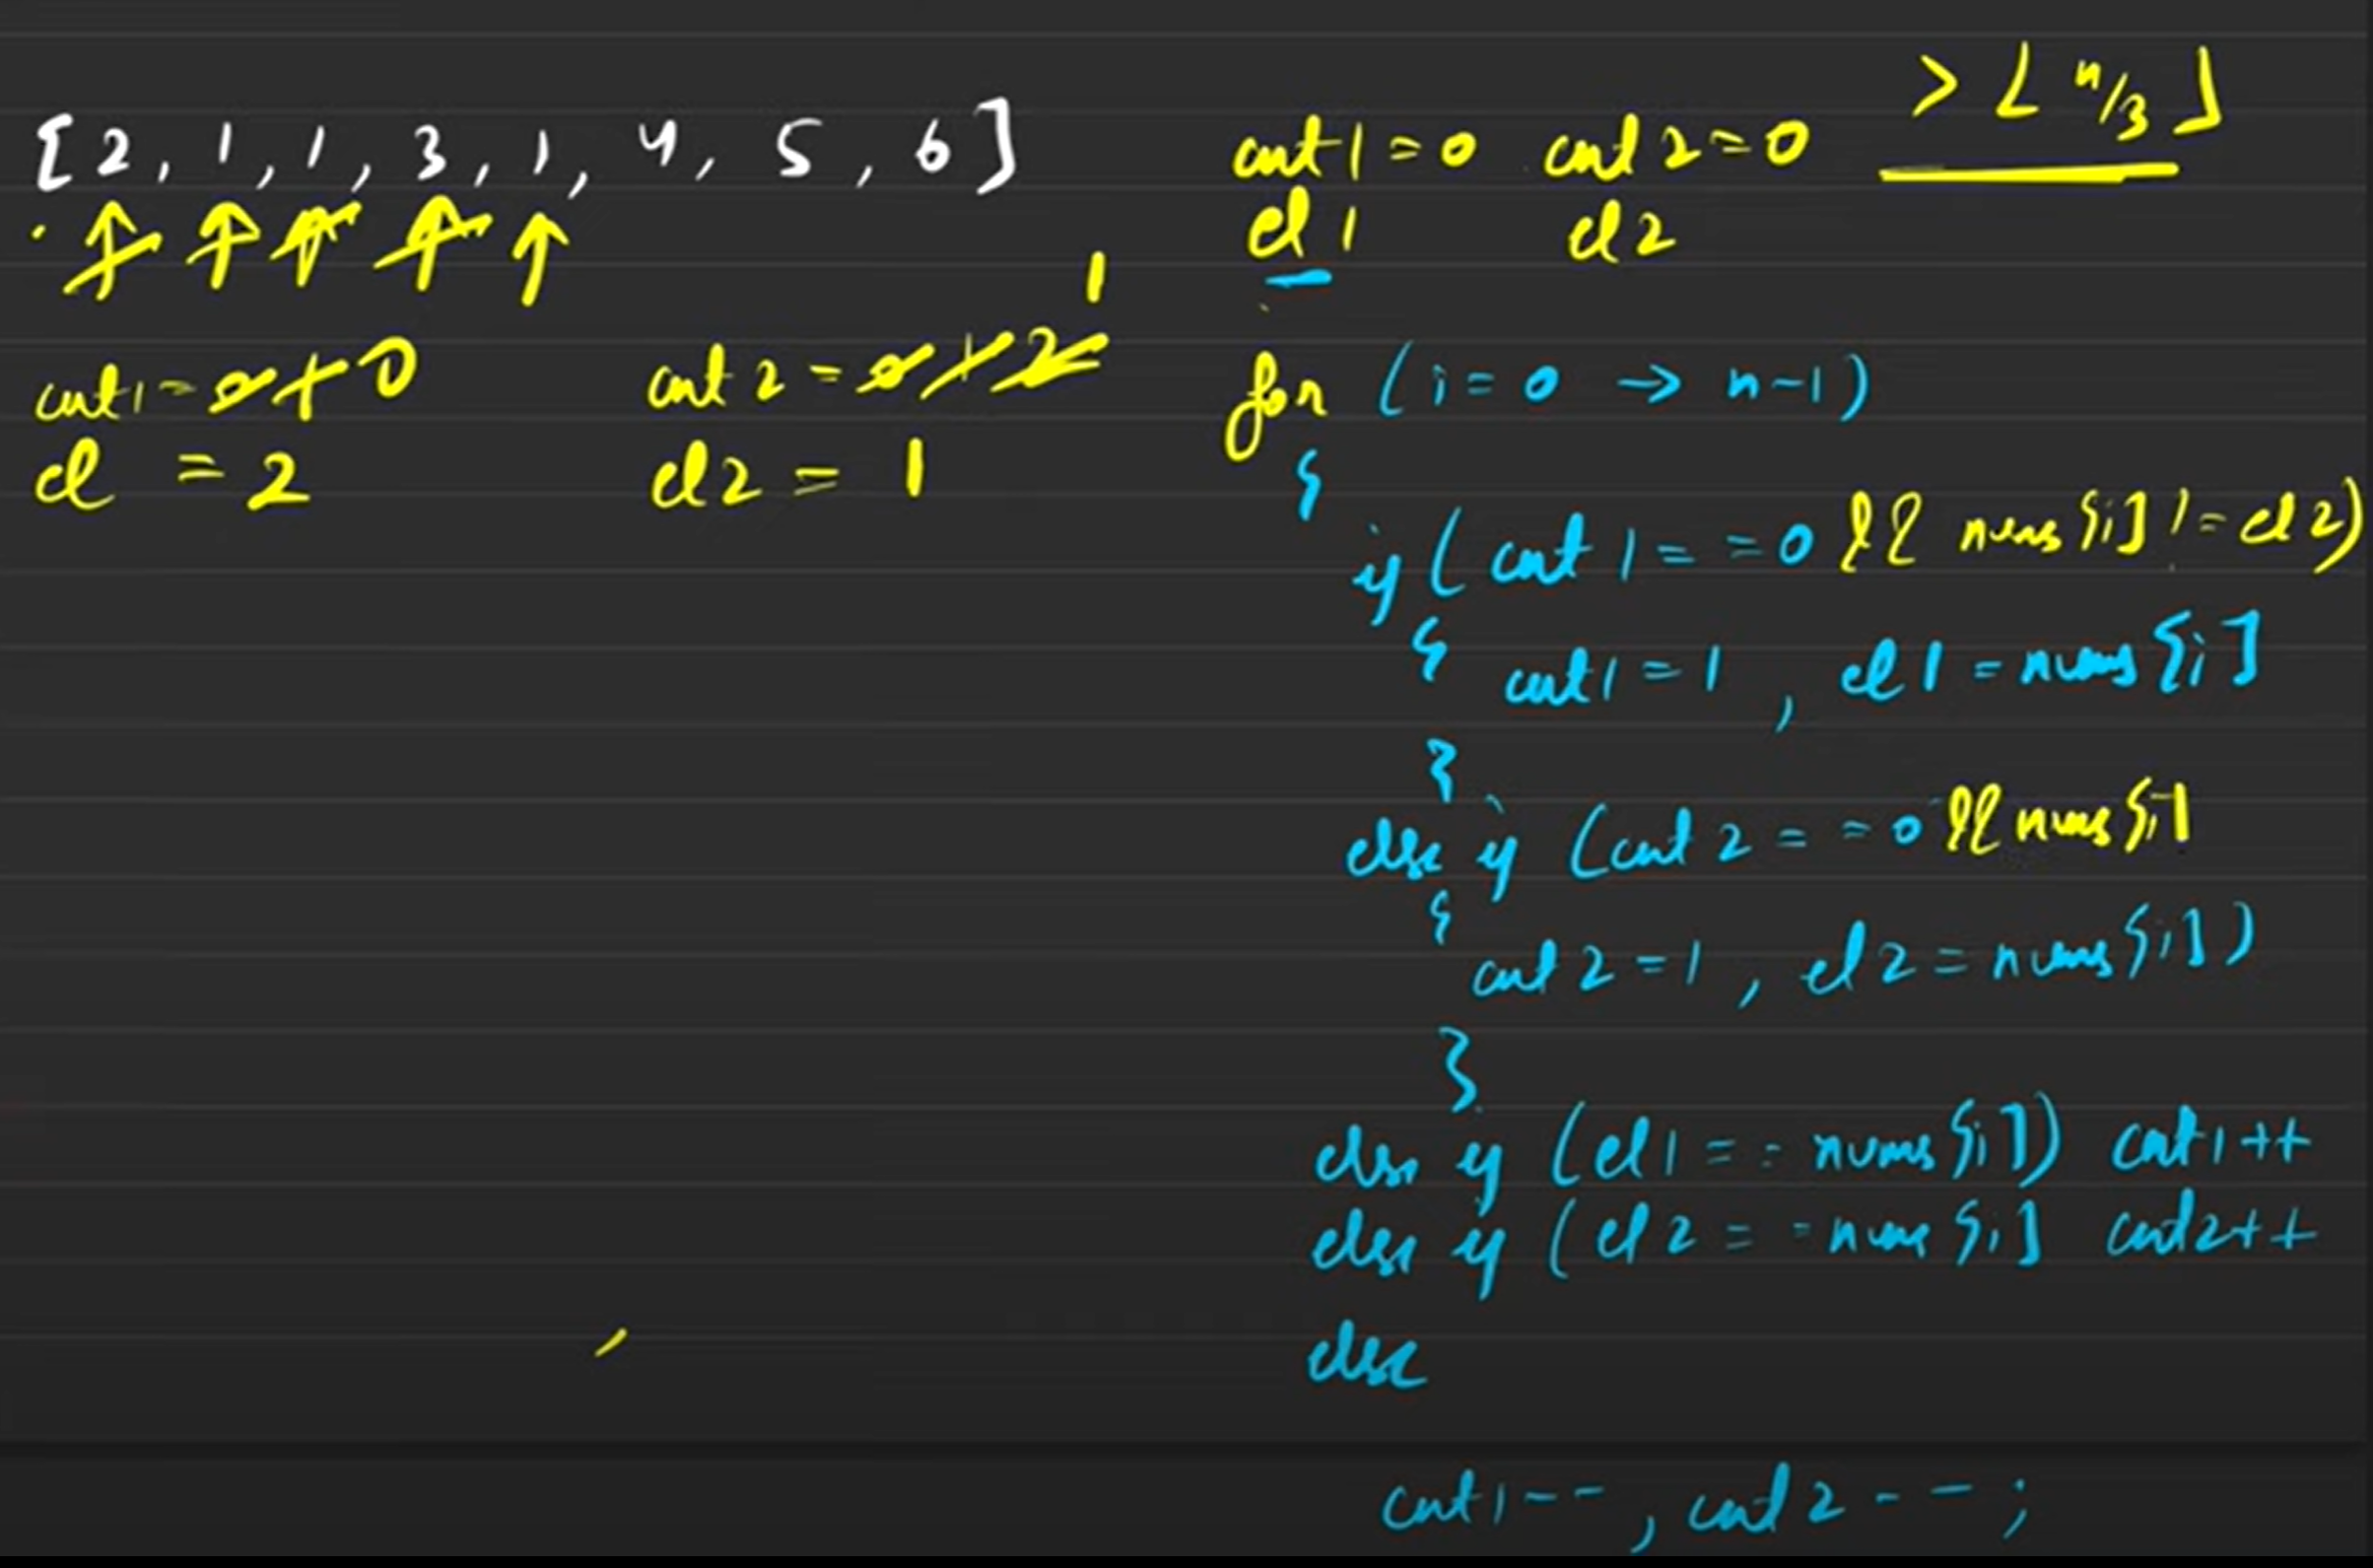 [2, 1, 1, 3, 1, 4, 5, 6]
cnt1 = 0 1 0
cnt2 = 0 1 2 1
el = 2
el2 = 1
cnt1 = 0 cnt2 = 0 > ⌊n/3⌋
el1 el2
for (i = 0 → n-1)
{
if (cnt1 == 0 && nums[i] != el2)
{ cnt1 = 1, el1 = nums[i]
}
else if (cnt2 == 0 && nums[i]
{
cnt2 = 1, el2 = nums[i])
}
else if (el1 == nums[i]) cnt1++
else if (el2 == nums[i] cnt2++
else
cnt1--, cnt2--;